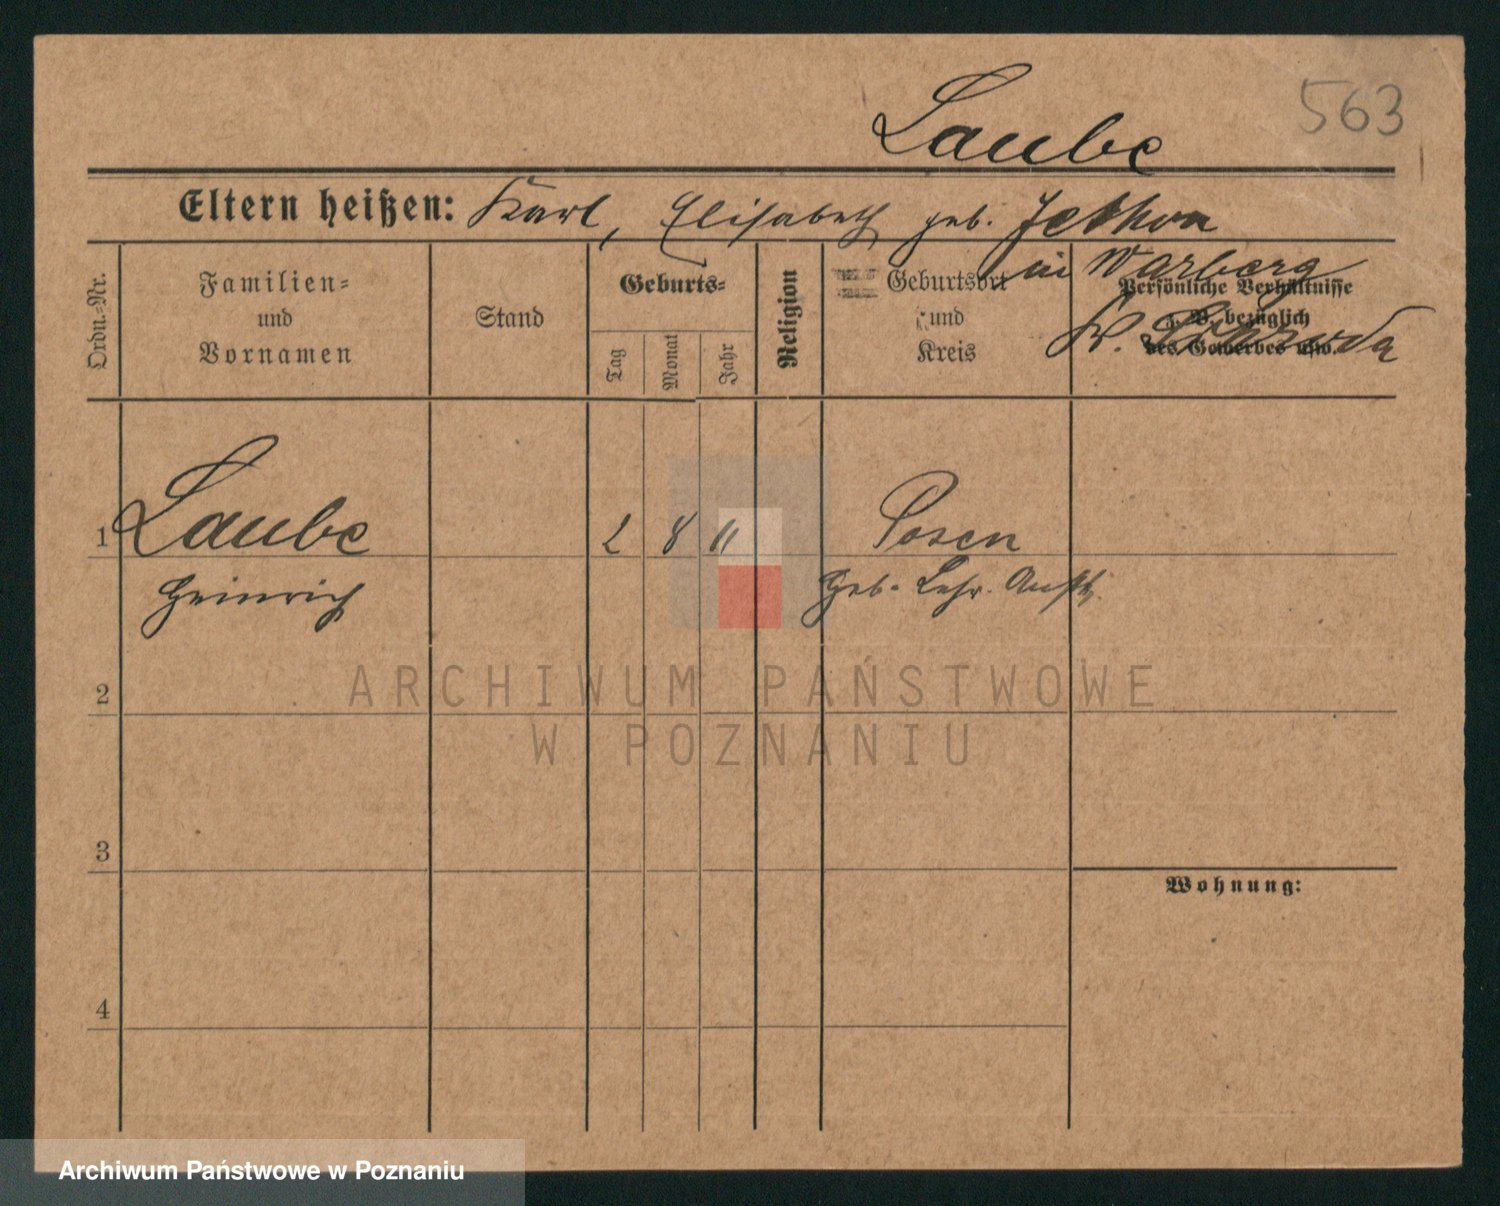 563
Laube
Eltern heißen: Karl, Elisabeth geb. Jethon
in Warberg
Kr.
Ordn.-Nr.
Familien- und Vornamen
Stand
Geburts-
Tag
Monat
Jahr
Religion
Geburtsort und Kreis
Persönliche Verhältnisse
z. B. bezüglich
des Gewerbes usw.
1 Laube 2 8 11 Posen
Heinrich geb. Lehr. Anst.
2
3
Wohnung:
4
ARCHIWUM PAŃSTWOWE
W POZNANIU
Archiwum Państwowe w Poznaniu